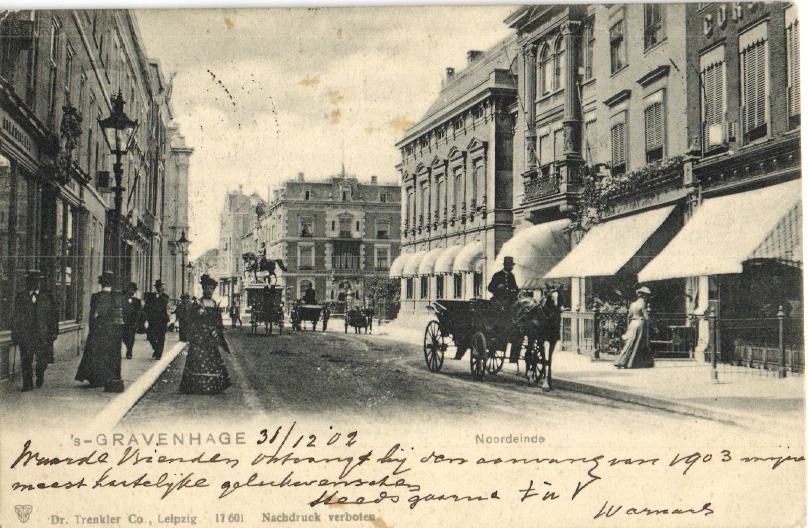 COR
's-GRAVENHAGE 31/12 02
Noordeinde
Waarde Vrienden Ontvangt bij den aanvang van 1903 mijne
meest hartelijke gelukwenschen
Steeds gaarne t.à.v
Warnars
Dr. Trenkler Co., Leipzig 17 601 Nachdruck verboten.